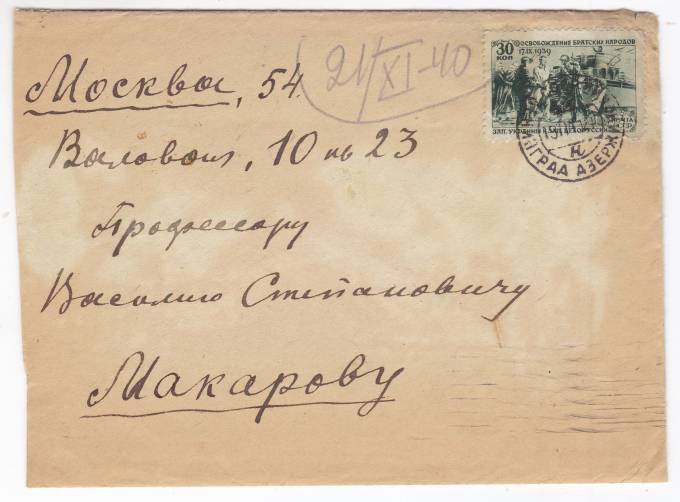 Москва, 54
Валовая, 10 кв 23
Профессору
Василию Степановичу
Макарову
21/XI-40
30 КОП
ОСВОБОЖДЕНИЕ БРАТСКИХ НАРОДОВ
17.IX.1939
ЗАП. УКРАИНЫ И ЗАП. БЕЛОРУССИИ
ПОЧТА
НИНГРАД ДЗЕРЖ